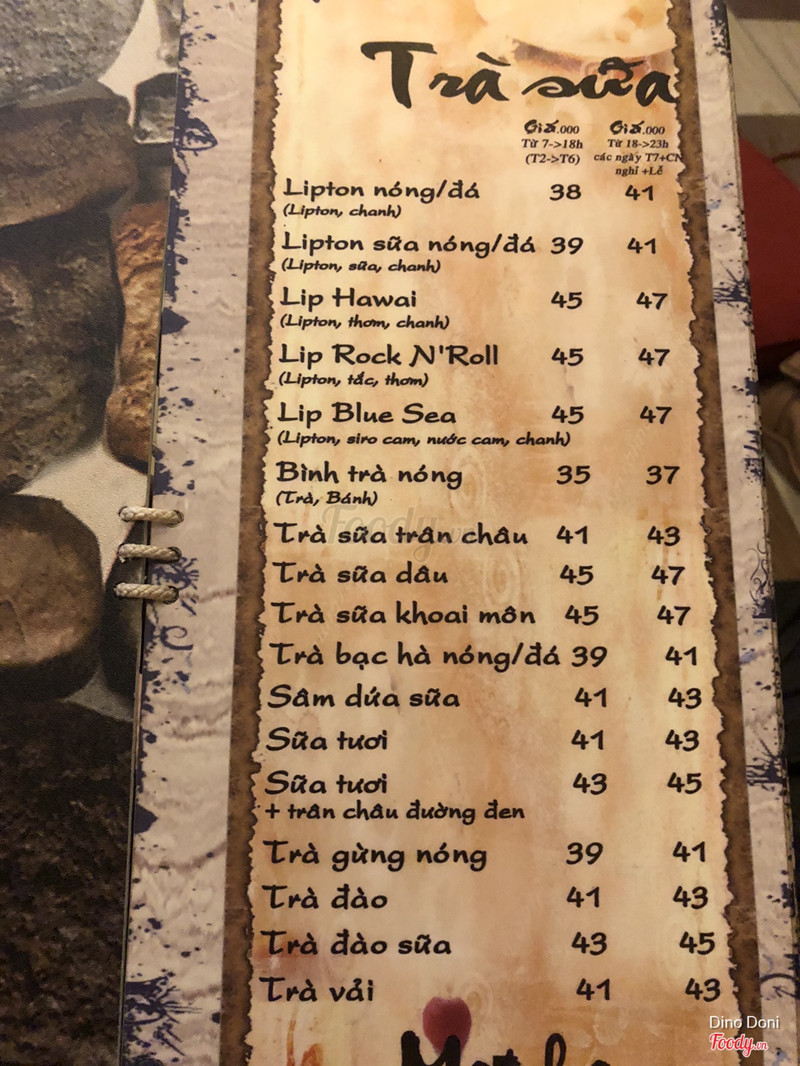 Trà sữa
Giá.000 Giá.000
Từ 7->18h Từ 18->23h
(T2->T6) các ngày T7+CN
nghỉ +Lễ
Lipton nóng/đá 38 41
(Lipton, chanh)
Lipton sữa nóng/đá 39 41
(Lipton, sữa, chanh)
Lip Hawai 45 47
(Lipton, thơm, chanh)
Lip Rock N'Roll 45 47
(Lipton, tắc, thơm)
Lip Blue Sea 45 47
(Lipton, siro cam, nước cam, chanh)
Bình trà nóng 35 37
(Trà, Bánh)
Trà sữa trân châu 41 43
Trà sữa dâu 45 47
Trà sữa khoai môn 45 47
Trà bạc hà nóng/đá 39 41
Sâm dứa sữa 41 43
Sữa tươi 41 43
Sữa tươi 43 45
+ trân châu đường đen
Trà gừng nóng 39 41
Trà đào 41 43
Trà đào sữa 43 45
Trà vải 41 43
Dino Doni
Foody.vn